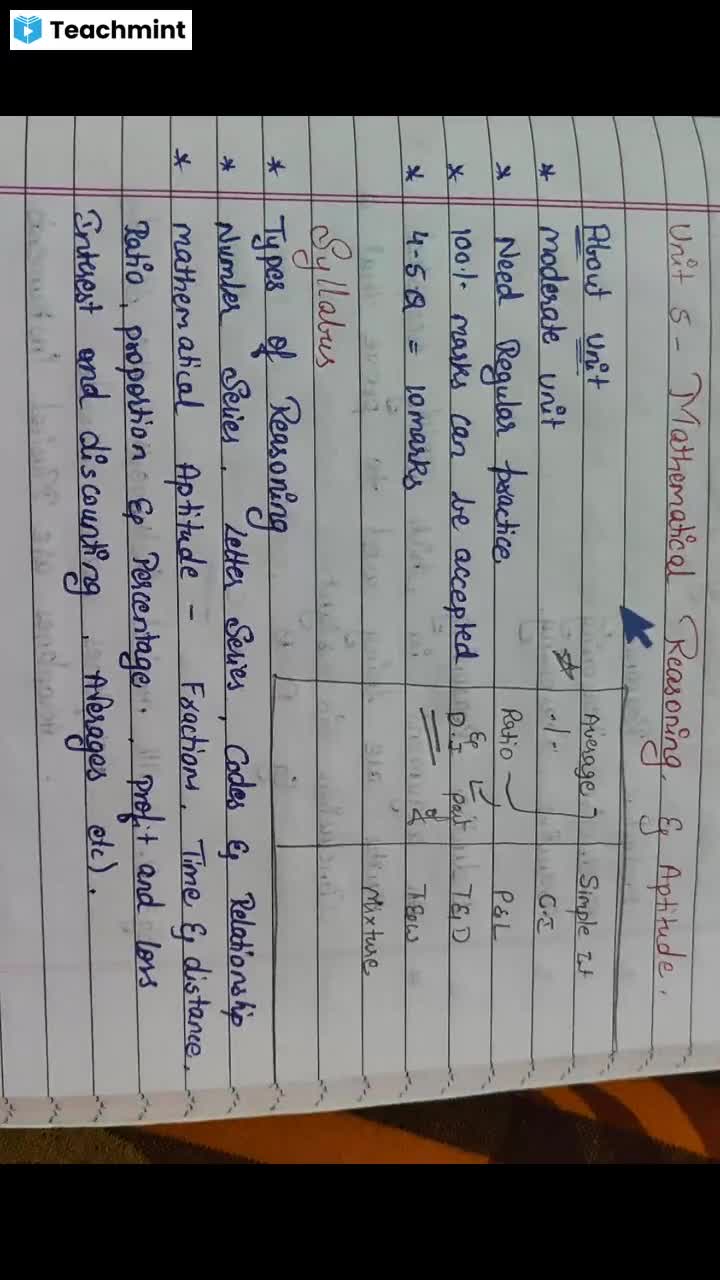 Teachmint
Unit 5 - Mathematical Reasoning & Aptitude.
About Unit
* moderate unit
* Need Regular practice
* 100% marks can be accepted
* 4-5 Q = 10 marks
Average
Simple Int
C.I
Ratio
P&L
& D.I part of
T&D
T&W
Mixture
Syllabus
* Types of Reasoning
* Number Series, Letter Series, Codes & Relationship
* mathematical Aptitude - Fraction, Time & distance,
Ratio, proportion & Percentage, profit and loss
Interest and discounting, Averages etc).